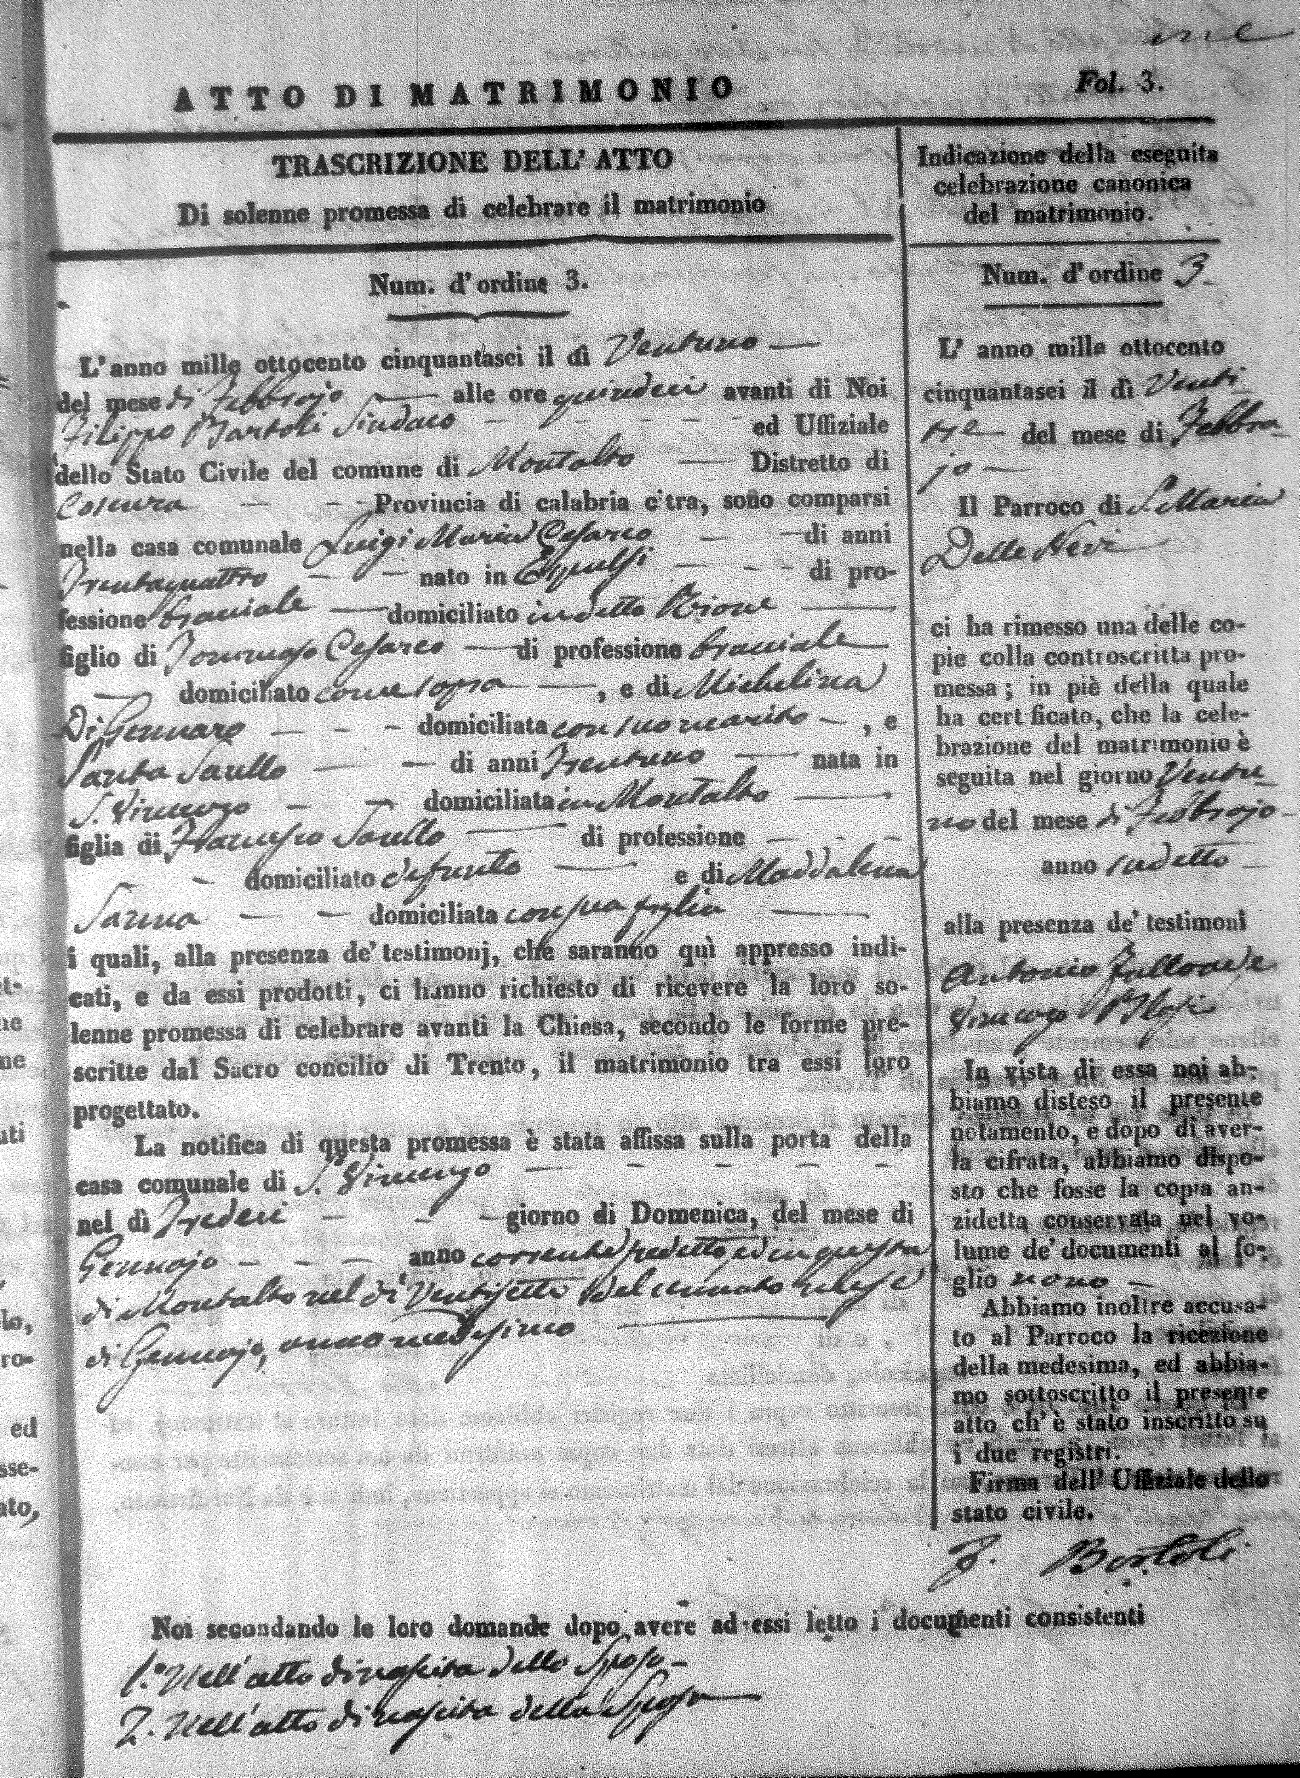 ATTO DI MATRIMONIO
Fol. 3.
TRASCRIZIONE DELL' ATTO
Di solenne promessa di celebrare il matrimonio
Num. d' ordine 3.
L' anno mille ottocento cinquantasei il dì Ventuno —
del mese di Febbrajo — alle ore quindeci avanti di Noi
Filippo Bartoli Sindaco — — — — ed Uffiziale
dello Stato Civile del comune di Montalto — Distretto di
Cosenza — — Provincia di calabria citra, sono comparsi
nella casa comunale Luigi Maria Cesareo — — di anni
Trentaquattro — — nato in — — di pro-
fessione bracciale — domiciliato in detto Rione —
figlio di Tommaso Cesareo — di professione bracciale —
— domiciliato come sopra —, e di Michelina
Di Gennaro — — — domiciliata con suo marito —, e
Santa Sarullo — — di anni Trentuno — nata in
S. Vincenzo — — domiciliata in Montalto —
figlia di Francesco Sarullo — di professione — — —
— domiciliato defunto — e di Maddalena
— — domiciliata con sua figlia —
i quali, alla presenza de' testimonj, che saranno quì appresso indi-
cati, e da essi prodotti, ci hanno richiesto di ricevere la loro so-
lenne promessa di celebrare avanti la Chiesa, secondo le forme pre-
scritte dal Sacro concilio di Trento, il matrimonio tra essi loro
progettato.
La notifica di questa promessa è stata affissa sulla porta della
casa comunale di S. Vincenzo — — — — —
nel dì Tredeci — — — giorno di Domenica, del mese di
Gennajo — — — anno corrente sudetto, ed in questa
di Montalto nel dì Ventisette Del mese
di Gennajo, anno medesimo —
Indicazione della eseguita
celebrazione canonica
del matrimonio.
Num. d' ordine 3.
L' anno mille ottocento
cinquantasei il dì Venti
tre — del mese di Febbra-
jo —
Il Parroco di S. Maria
Delle Nevi —
ci ha rimesso una delle co-
pie colla controscritta pro-
messa; in piè della quale
ha certificato, che la cele-
brazione del matrimonio è
seguita nel giorno Ventu-
no del mese di Febbrajo —
anno sudetto —
alla presenza de' testimoni
Antonio e
Vincenzo
In vista di essa noi ab-
biamo disteso il presente
notamento, e dopo di aver-
la cifrata, abbiamo dispo-
sto che fosse la copia an-
zidetta conservata nel vo-
lume de' documenti al fo-
glio nono —
Abbiamo inoltre accusa-
to al Parroco la ricezione
della medesima, ed abbia-
mo sottoscritto il presente
atto ch' è stato inscritto su
i due registri.
Firma dell' Uffiziale dello
stato civile.
F. Bartoli
Noi secondando le loro domande dopo avere ad essi letto i documenti consistenti
1.° Nell' atto di nascita dello Sposo —
2. Nell' atto di nascita della Sposa —